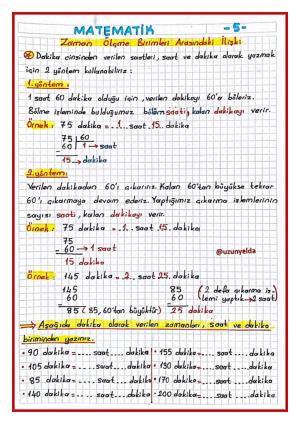 MATEMATİK -5-
Zaman Ölçme Birimleri Arasındaki İlişki
* Dakika cinsinden verilen saatleri, saat ve dakika olarak yazmak
için 2 yöntem kullanabiliriz:
1. yöntem:
1 saat 60 dakika olduğu için, verilen dakikayı 60'a böleriz.
Bölme işleminde bulduğumuz bölüm saati, kalan dakikayı verir.
Örnek: 75 dakika = .1. saat .15. dakika
75 | 60
- 60 1 → saat
15 → dakika
2. yöntem:
Verilen dakikadan 60'ı çıkarırız. Kalan 60'tan büyükse tekrar
60'ı çıkarmaya devam ederiz. Yaptığımız çıkarma işlemlerinin
sayısı saati, kalan dakikayı verir.
Örnek: 75 dakika = .1. saat .15. dakika
75
- 60 → 1 saat
15 dakika
@uzunyelda
Örnek: 145 dakika = .2. saat .25. dakika
145 85 (2 defa çıkarma iş-
60 60 lemi yaptık → 2 saat)
85 (85, 60'tan büyüktür) 25 dakika
⇒ Aşağıda dakika olarak verilen zamanları, saat ve dakika
biriminden yazınız.
• 90 dakika = .... saat .... dakika • 155 dakika = .... saat .... dakika
• 105 dakika = .... saat .... dakika • 130 dakika = .... saat .... dakika
• 85 dakika = .... saat .... dakika • 170 dakika = .... saat .... dakika
• 140 dakika = .... saat .... dakika • 200 dakika = .... saat .... dakika